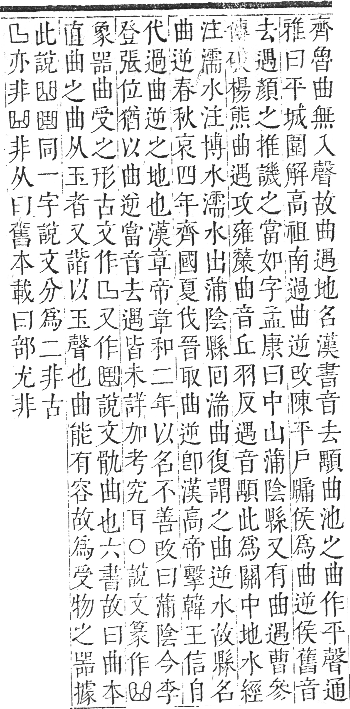 齊魯曲無入聲故曲遇地名漢書音去顒曲池之曲作平聲通
雅曰平城圍解高祖南過曲逆攺陳平戶牖侯爲曲逆侯舊音
去遇顔之推譏之當如字孟康曰中山蒲陰縣又有曲遇曹參
傳破楊熊曲遇攻雍曲音丘羽反遇音顒此爲關中地水經
注濡水注博水濡水出蒲陰縣回湍曲復謂之曲逆水故縣名
曲逆春秋哀四年齊國夏伐晉取曲逆卽漢高帝擊韓王信自
代過曲逆之地也漢章帝章和二年以名不善攺曰蒲陰今李
登張位猶以曲逆當音去遇皆未詳加考究耳○說文篆作
象器曲受之形古文作又作說文骫曲也六書故曰曲本
直曲之曲从玉者又諧以玉聲也曲能有容故爲受物之器據
此說同一字說文分爲二非古
亦非非从曰舊本載曰部尤非